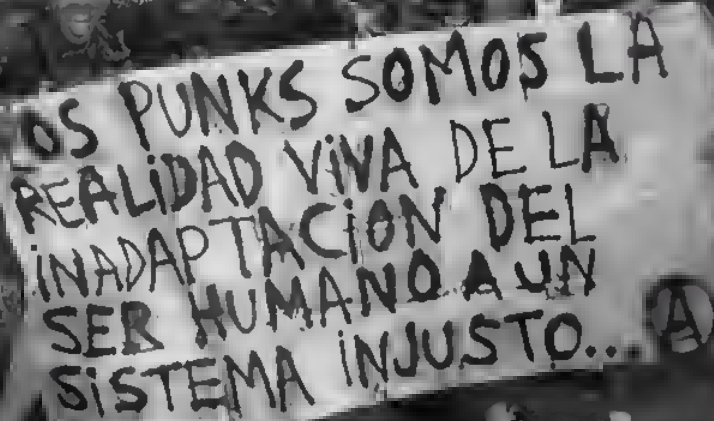 OS PUNKS SOMOS LA
REALiDAD ViVA DE LA
iNADAPTACiON DEL
SER HUMANO A UN
SiSTEMA iNJUSTO...
A